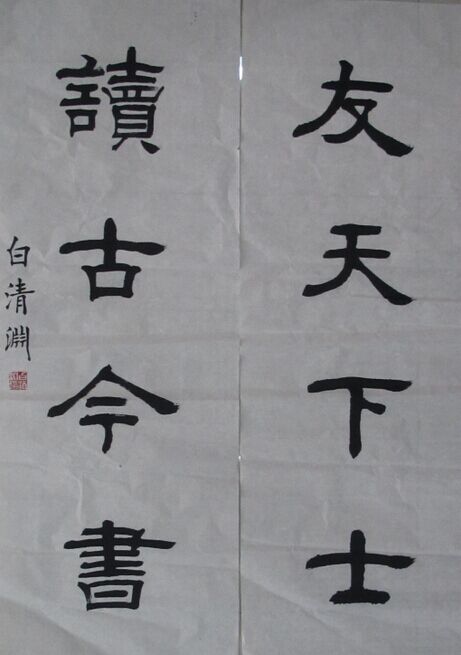 友天下士
讀古今書
白清淵